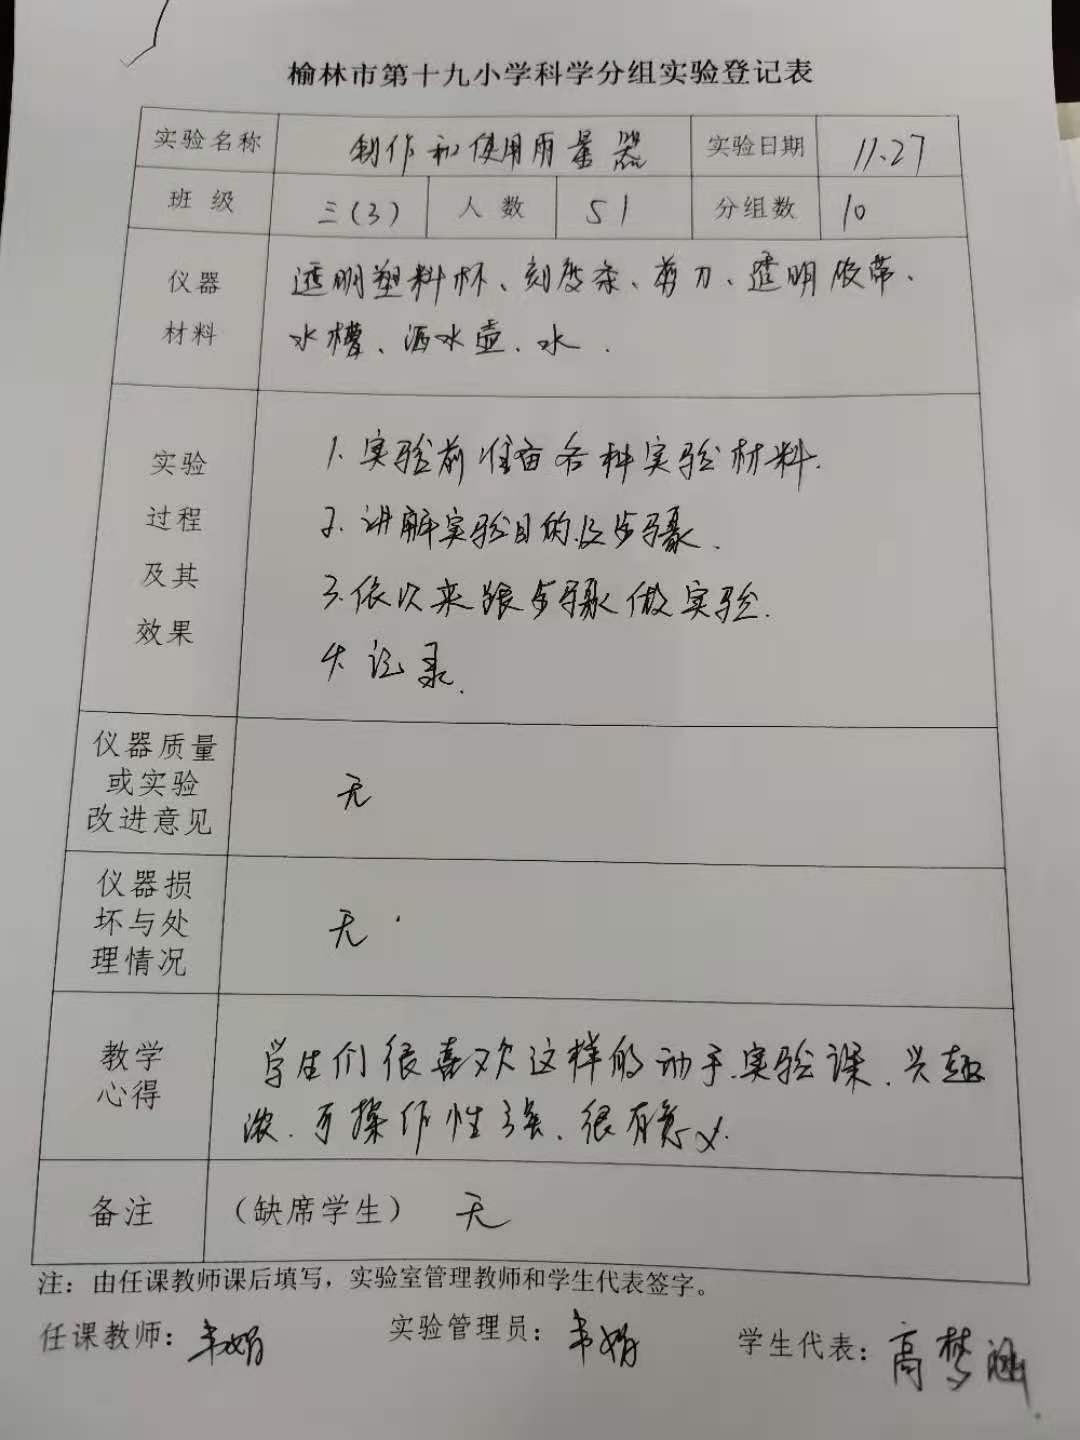 榆林市第十九小学科学分组实验登记表
实验名称 制作和使用雨量器 实验日期 11.27
班级 三(3) 人数 51 分组数 10
仪器
材料
透明塑料杯、刻度条、剪刀、透明胶带、
水槽、洒水壶、水.
实验
过程
及其
效果
1.实验前准备各种实验材料.
2.讲解实验目的及步骤.
3.依次来跟步骤做实验.
4.记录.
仪器质量
或实验
改进意见
无
仪器损
坏与处
理情况
无.
教学
心得
学生们很喜欢这样的动手实验课、兴趣
浓、可操作性强、很有意义.
备注 (缺席学生) 无
注：由任课教师课后填写，实验室管理教师和学生代表签字。
任课教师：韦娟 实验管理员：韦娟 学生代表：高梦涵